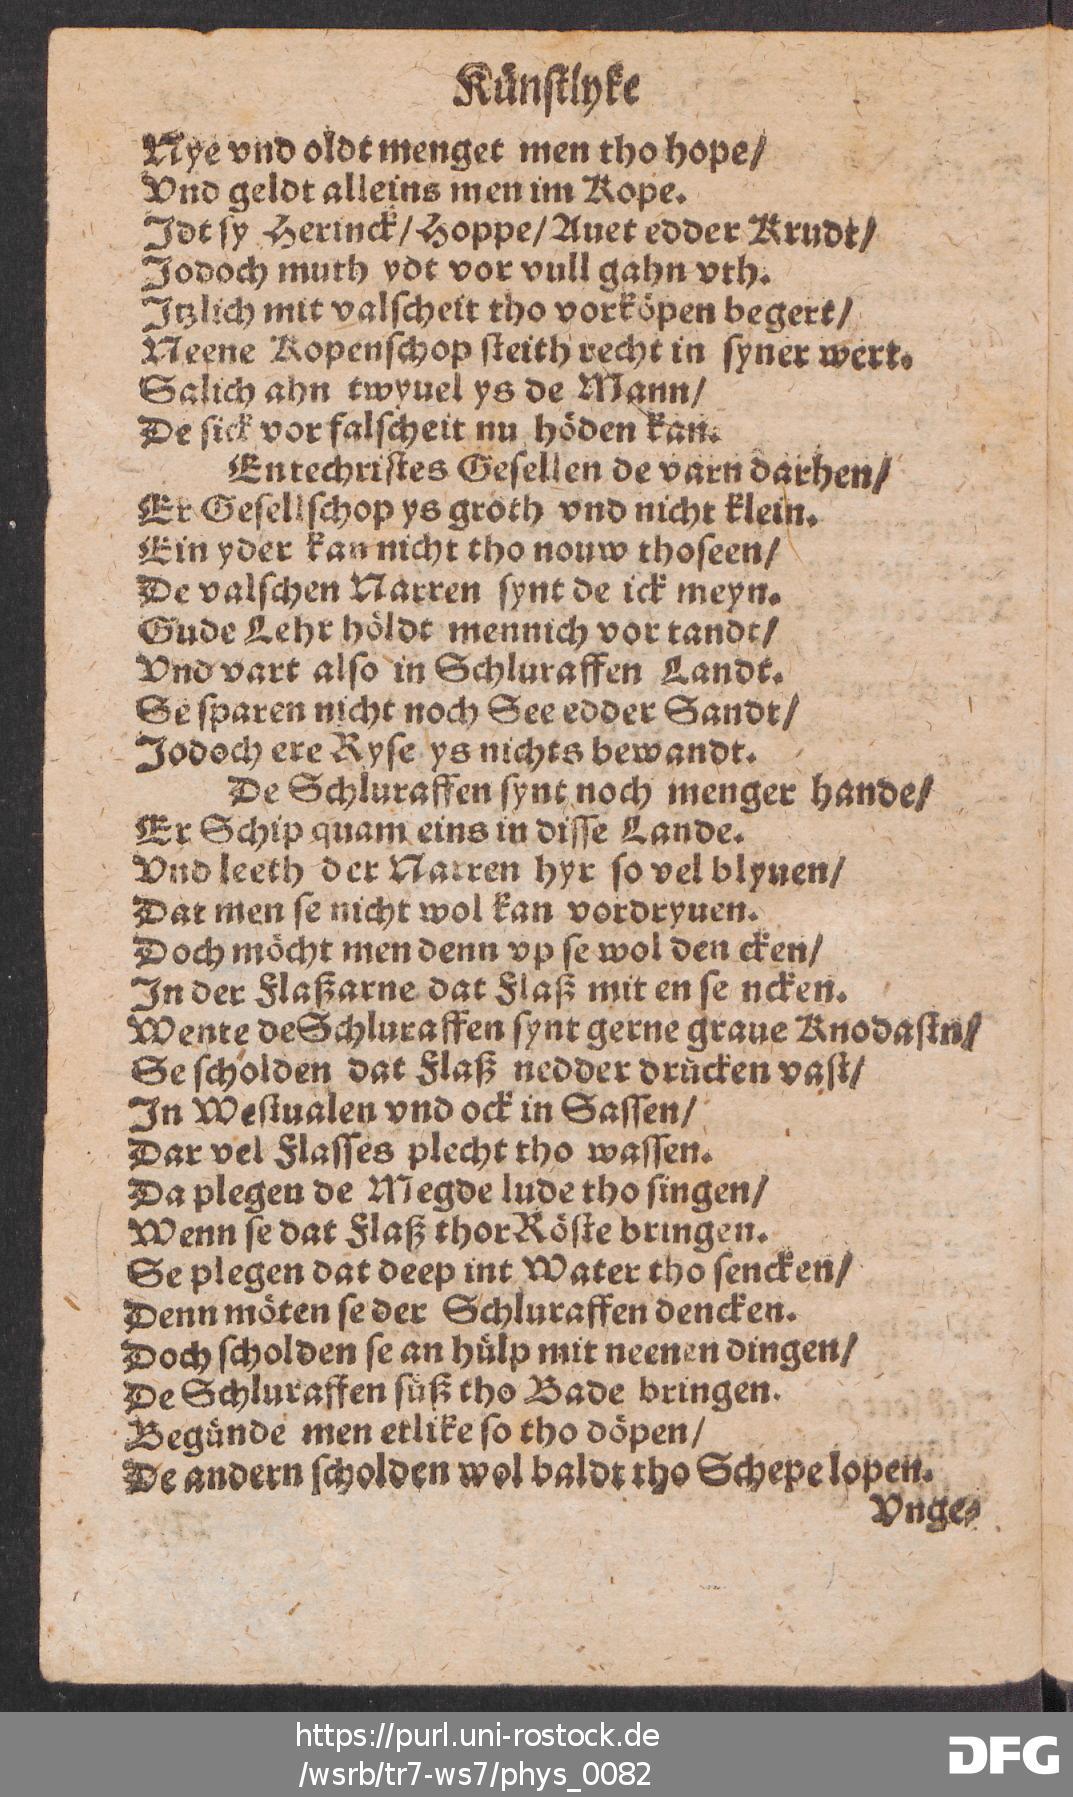 Kuͤnſtlyke
Nye vnd oldt menget men tho hope/
Vnd geldt alleins men im Kope.
Idt ſy Herinck/ Hoppe/ Auet edder Krudt/
Jodoch muth ydt vor vull gahn vth.
Itzlich mit valſcheit tho vorkoͤpen begert/
Neene Kopenſchop ſteith recht in ſyner wert.
Salich ahn twyuel ys de Mann/
De ſick vor falſcheit nu hoͤden kan.
Entechriſtes Geſellen de varn darhen/
Er Geſellſchop ys groth vnd nicht klein.
Ein yder kan nicht tho nouw thoſeen/
De valſchen Narren ſynt de ick meyn.
Gude Lehr hoͤldt mennich vor tandt/
Vnd vart alſo in Schluraffen Landt.
Se ſparen nicht noch See edder Sandt/
Jodoch ere Ryſe ys nichts bewandt.
De Schluraffen ſynt noch menger hande/
Er Schip quam eins in diſſe Lande.
Vnd leeth der Narren hyr ſo vel blyuen/
Dat men ſe nicht wol kan vordryuen.
Doch moͤcht men denn vp ſe wol den cken/
In der Flaßarne dat Flaß mit en ſe ncken.
Wente de Schluraffen ſynt gerne graue Knodaſtn/
Se ſcholden dat Flaß nedder druͤcken vaſt/
In Weſtualen vnd ock in Saſſen/
Dar vel Flaſſes plecht tho waſſen.
Da plegen de Megde lude tho ſingen/
Wenn ſe dat Flaß thor Roͤſte bringen.
Se plegen dat deep int Water tho ſencken/
Denn moͤten ſe der Schluraffen dencken.
Doch ſcholden ſe an huͤlp mit neenen dingen/
De Schluraffen ſuͤß tho Bade bringen.
Beguͤnde men etlike ſo tho doͤpen/
De andern ſcholden wol baldt tho Schepe lopen.
Vnge⸗
https://purl.uni-rostock.de
/wsrb/tr7-ws7/phys_0082
DFG